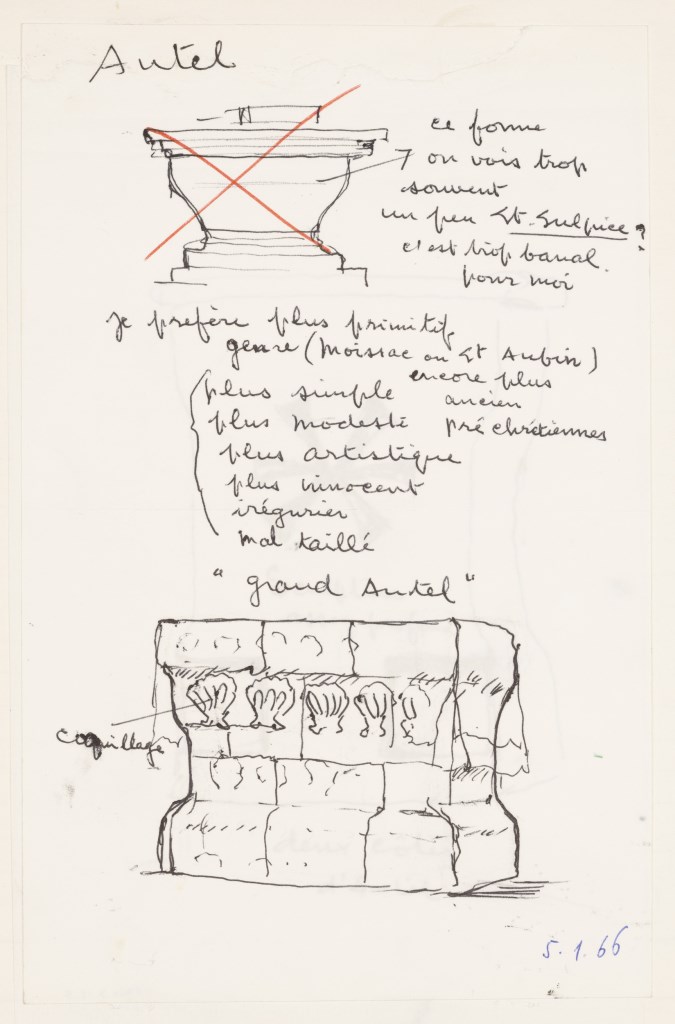 Autel
ce forme
on vois trop
souvent
un peu St. Sulpice ?
c'est trop banal.
pour moi
je prefère plus primitif
genre (Moissac ou St Aubin)
encore plus
ancien
pré chrétiennes
plus simple
plus modeste
plus artistique
plus innocent
irégurier
mal taillé
"grand Autel"
coquillage
5.1.66